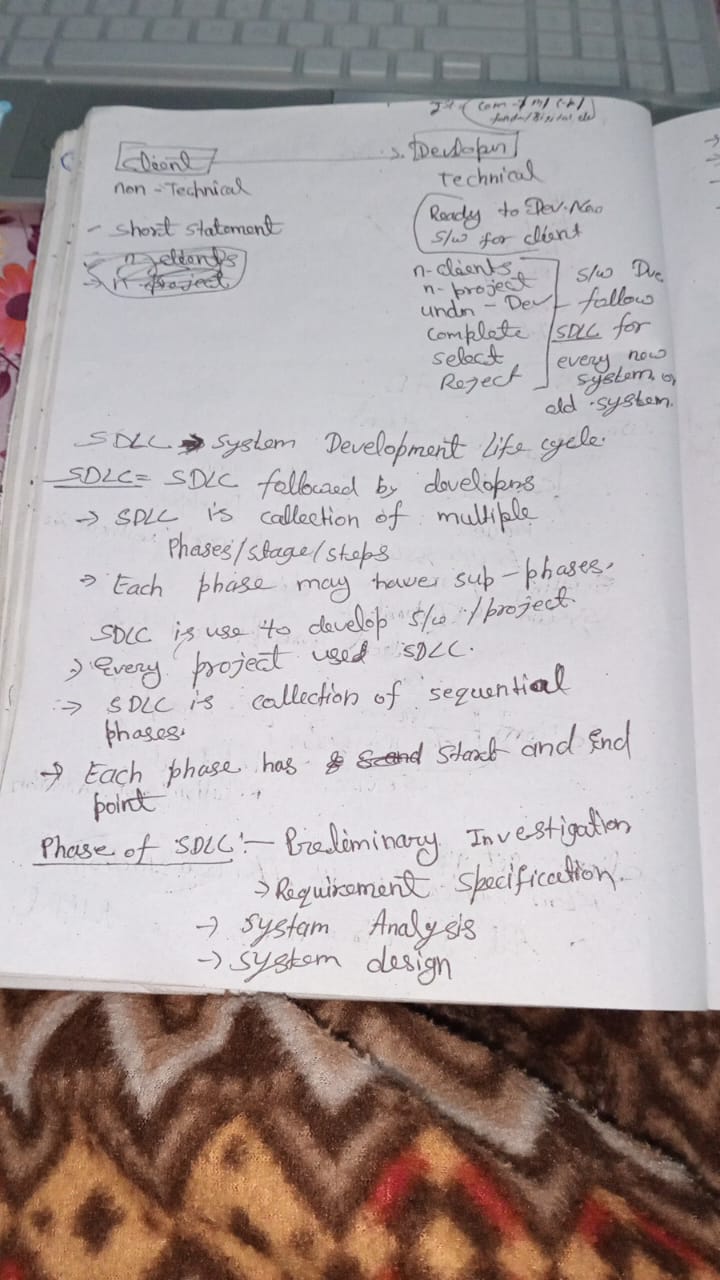 Client
Non-Technical
- Short Statement
n-clients
→ project
s. Developer
Technical
Ready to Dev. New
S/w for client
n-clients
n-project
undn-Dev
Complete
Select
Reject
S/w Dve
follow
SDLC for
every new
system, or
old system.
SDLC → System Development Life cycle.
SDLC = SDLC followed by developers
→ SDLC is collection of multiple
Phases/stage/steps
→ Each phase may have sub-phases.
SDLC is use to develop S/w /project.
→ Every project used SDLC.
→ SDLC is collection of sequential
phases.
→ Each phase has Start and End
point
Phase of SDLC:- Preliminary Investigation
→ Requirement Specification.
→ System Analysis
→ System design